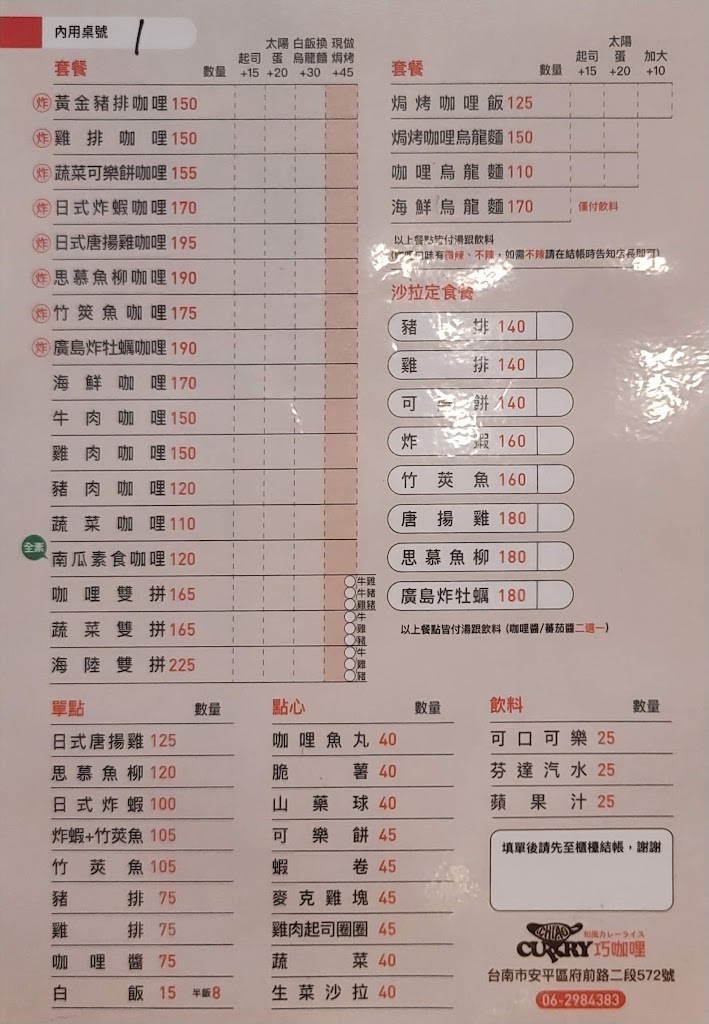 內用桌號 1
套餐 數量 起司+15 太陽蛋+20 白飯換烏龍麵+30 現做焗烤+45
炸 黃金豬排咖哩 150
炸 雞排咖哩 150
炸 蔬菜可樂餅咖哩 155
炸 日式炸蝦咖哩 170
炸 日式唐揚雞咖哩 195
炸 思慕魚柳咖哩 190
炸 竹筴魚咖哩 175
炸 廣島炸牡蠣咖哩 190
海鮮咖哩 170
牛肉咖哩 150
雞肉咖哩 150
豬肉咖哩 120
蔬菜咖哩 110
全素 南瓜素食咖哩 120
咖哩雙拼 165 牛雞 牛豬 雞豬
蔬菜雙拼 165 牛 雞 豬
海陸雙拼 225 牛 雞 豬
套餐 數量 起司+15 太陽蛋+20 加大+10
焗烤咖哩飯 125
焗烤咖哩烏龍麵 150
咖哩烏龍麵 110
海鮮烏龍麵 170 僅付飲料
以上餐點皆付湯跟飲料
口味有微辣、不辣,如需不辣請在結帳時告知店長即可)
沙拉定食餐
豬排 140
雞排 140
可 餅 140
炸蝦 160
竹莢魚 160
唐揚雞 180
思慕魚柳 180
廣島炸牡蠣 180
以上餐點皆付湯跟飲料 (咖哩醬/蕃茄醬二選一)
單點 數量
日式唐揚雞 125
思慕魚柳 120
日式炸蝦 100
炸蝦+竹莢魚 105
竹莢魚 105
豬排 75
雞排 75
咖哩醬 75
白飯 15 半飯8
點心 數量
咖哩魚丸 40
脆薯 40
山藥球 40
可樂餅 45
蝦卷 45
麥克雞塊 45
雞肉起司圈圈 45
蔬菜 40
生菜沙拉 40
飲料 數量
可口可樂 25
芬達汽水 25
蘋果汁 25
填單後請先至櫃檯結帳,謝謝
CHIAO 和風カレーライス
CURRY 巧咖哩
台南市安平區府前路二段572號
06-2984383